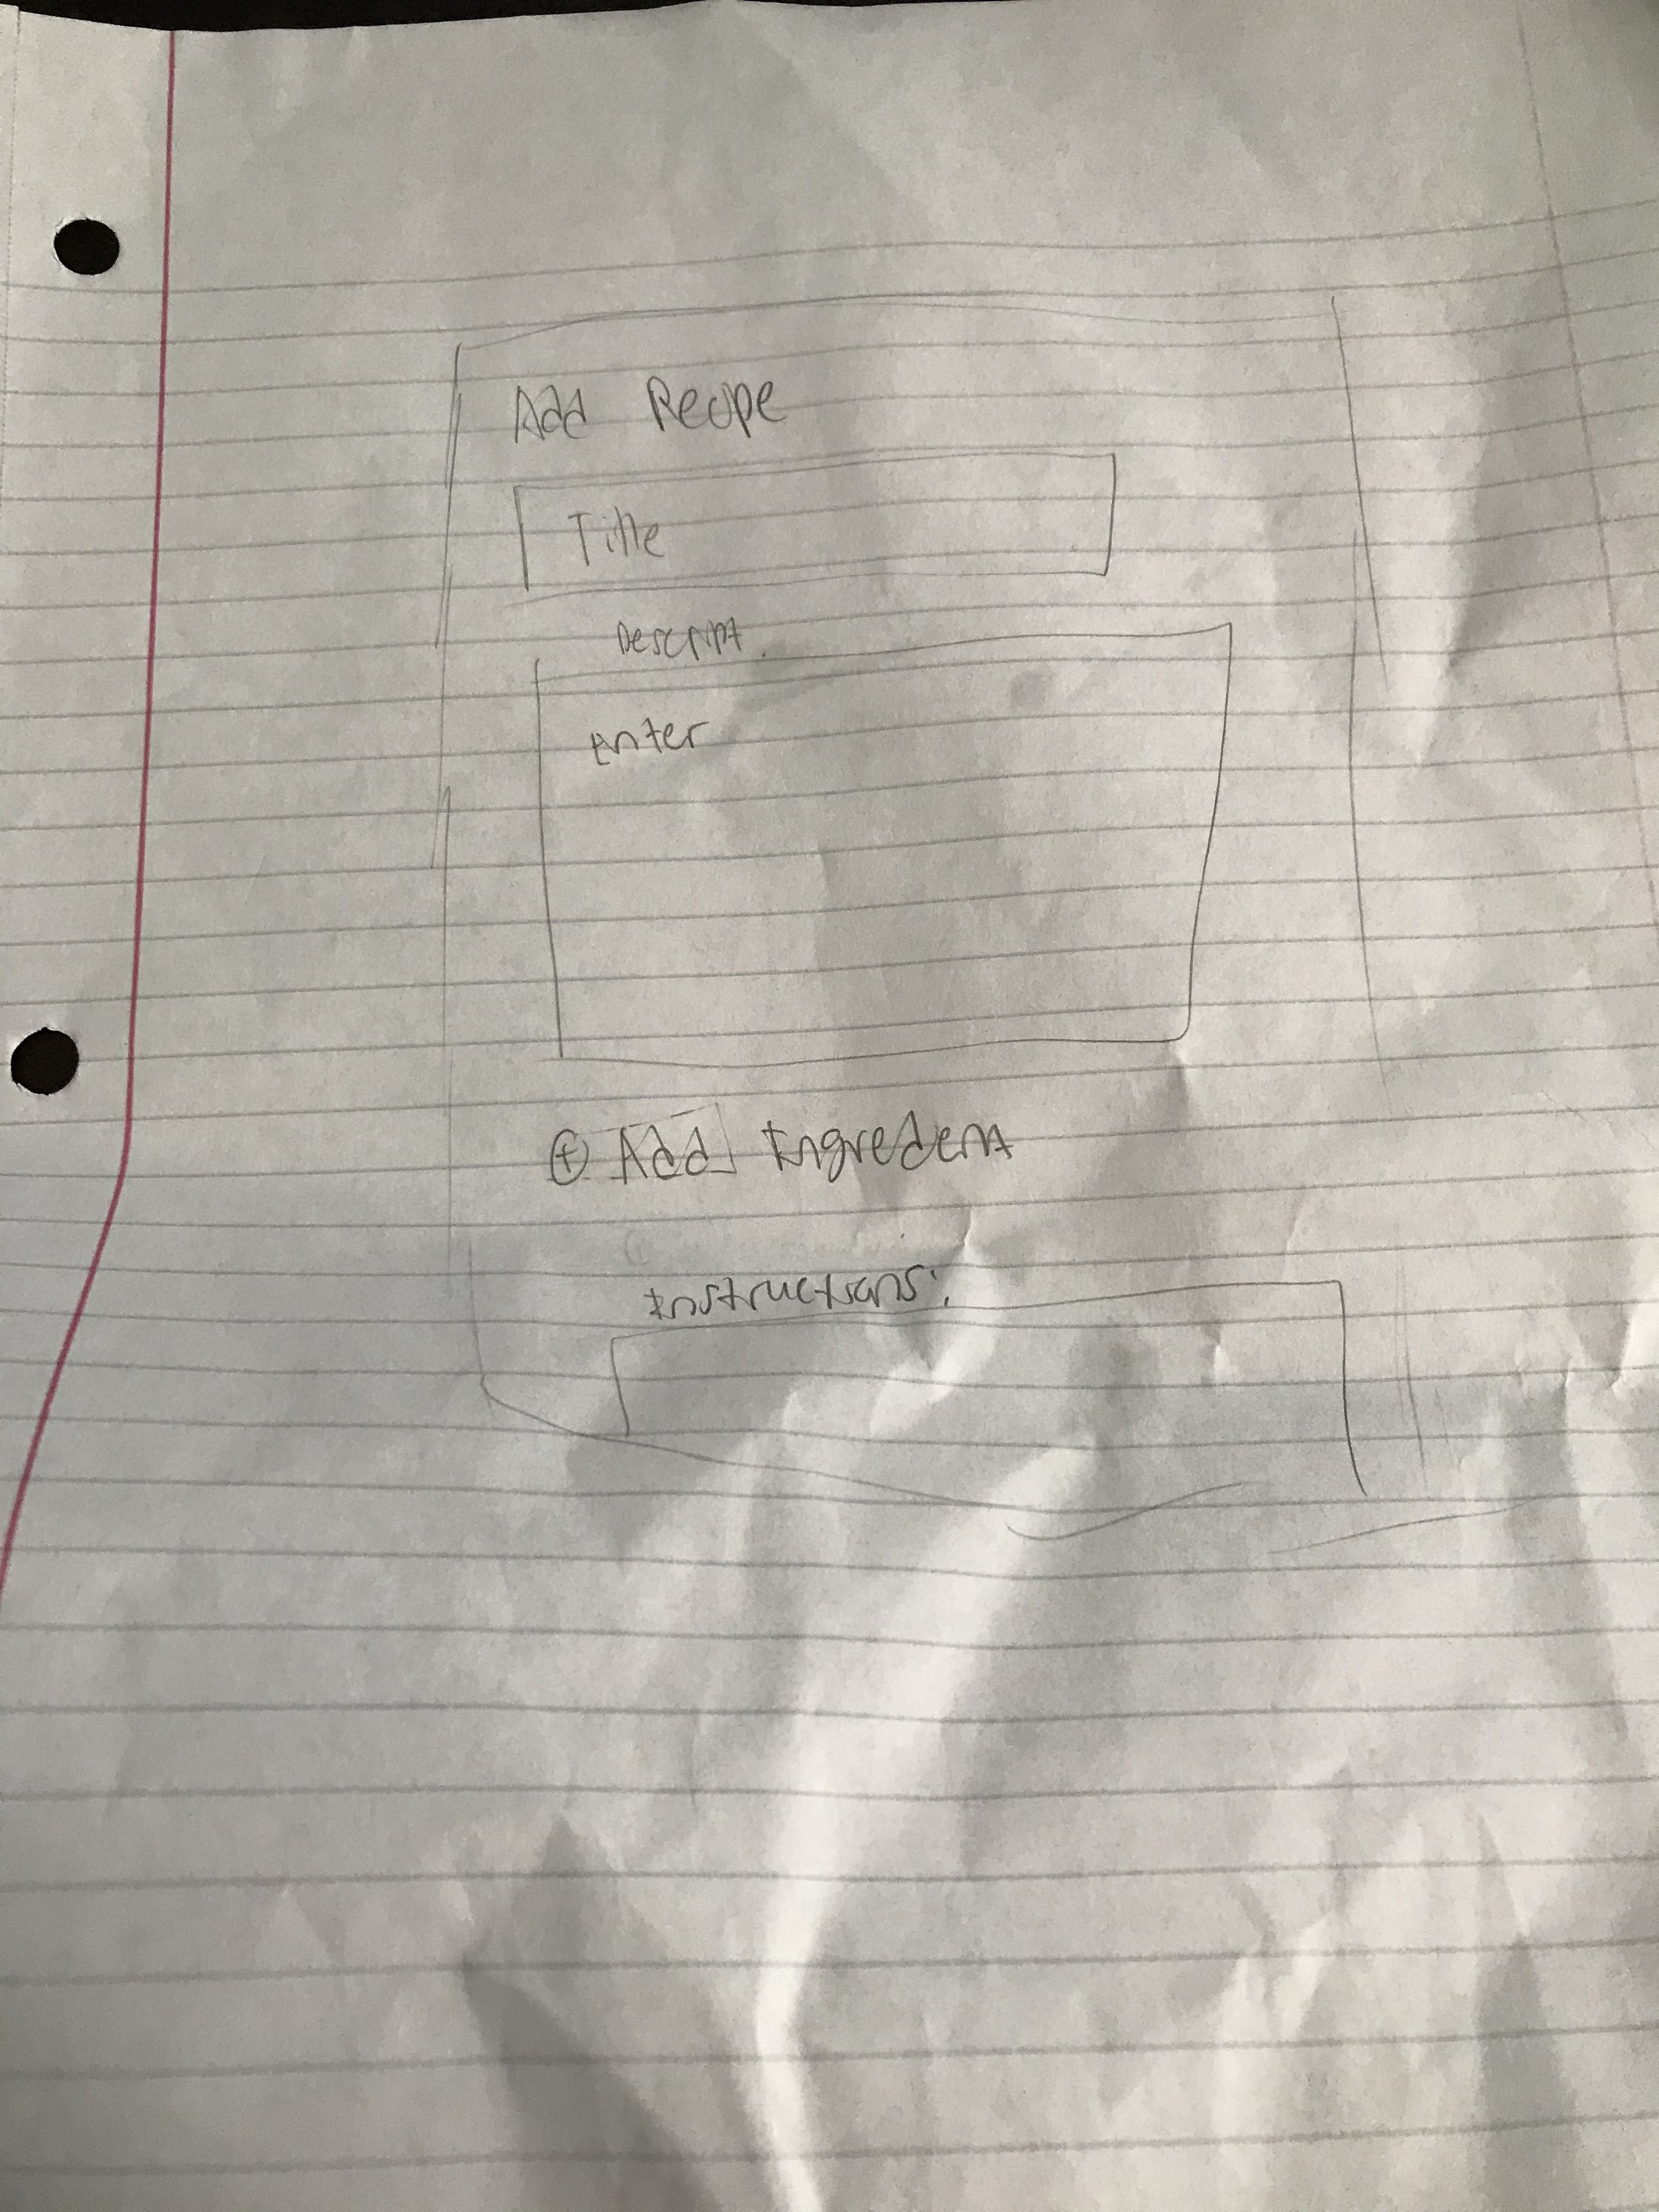 Add Recipe
Title
Descript.
Enter
+ Add Ingredent
Instructions: